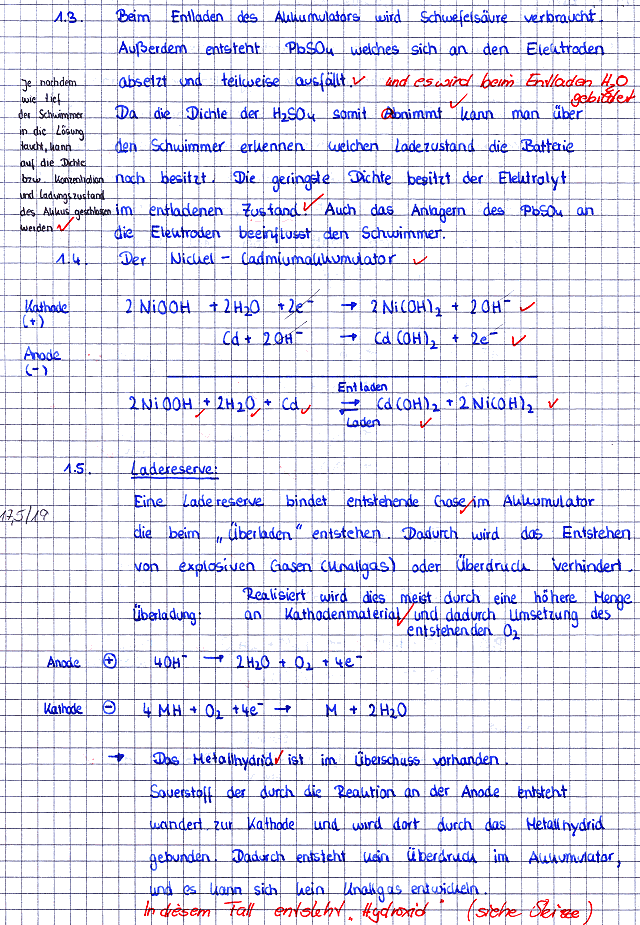 1.3. Beim Entladen des Akkumulators wird Schwefelsäure verbraucht.
Außerdem entsteht PbSO4 welches sich an den Elektroden
absetzt und teilweise ausfällt. und es wird beim Entladen H2O
gebildet
Da die Dichte der H2SO4 somit abnimmt kann man über
den Schwimmer erkennen welchen Ladezustand die Batterie
noch besitzt. Die geringste Dichte besitzt der Elektrolyt
im entladenen Zustand. Auch das Anlagern des PbSO4 an
die Elektroden beeinflusst den Schwimmer.
Je nachdem
wie tief
der Schwimmer
in die Lösung
taucht, kann
auf die Dichte
bzw. Konzentration
und Ladungszustand
des Akkus geschlossen
werden
1.4. Der Nickel - Cadmiumakkumulator
Kathode (+) 2 NiOOH + 2H2O + 2e- → 2 Ni(OH)2 + 2 OH-
Cd + 2 OH- → Cd(OH)2 + 2e-
Anode (-)
2 NiOOH + 2H2O + Cd Entladen ⇄ Laden Cd(OH)2 + 2 Ni(OH)2
1.5. Ladereserve:
17,5/19
Eine Ladereserve bindet entstehende Gase im Akkumulator
die beim „Überladen" entstehen. Dadurch wird das Entstehen
von explosiven Gasen (Knallgas) oder Überdruck verhindert.
Realisiert wird dies meist durch eine höhere Menge
an Kathodenmaterial und dadurch Umsetzung des
entstehenden O2
Überladung:
Anode ⊕ 4OH- → 2H2O + O2 + 4e-
Kathode ⊖ 4 MH + O2 + 4e- → M + 2H2O
→ Das Metallhydrid ist im Überschuss vorhanden.
Sauerstoff der durch die Reaktion an der Anode entsteht
wandert zur Kathode und wird dort durch das Metallhydrid
gebunden. Dadurch entsteht kein Überdruck im Akkumulator,
und es kann sich kein Knallgas entwickeln.
In diesem Fall entsteht Hydroxid (siehe